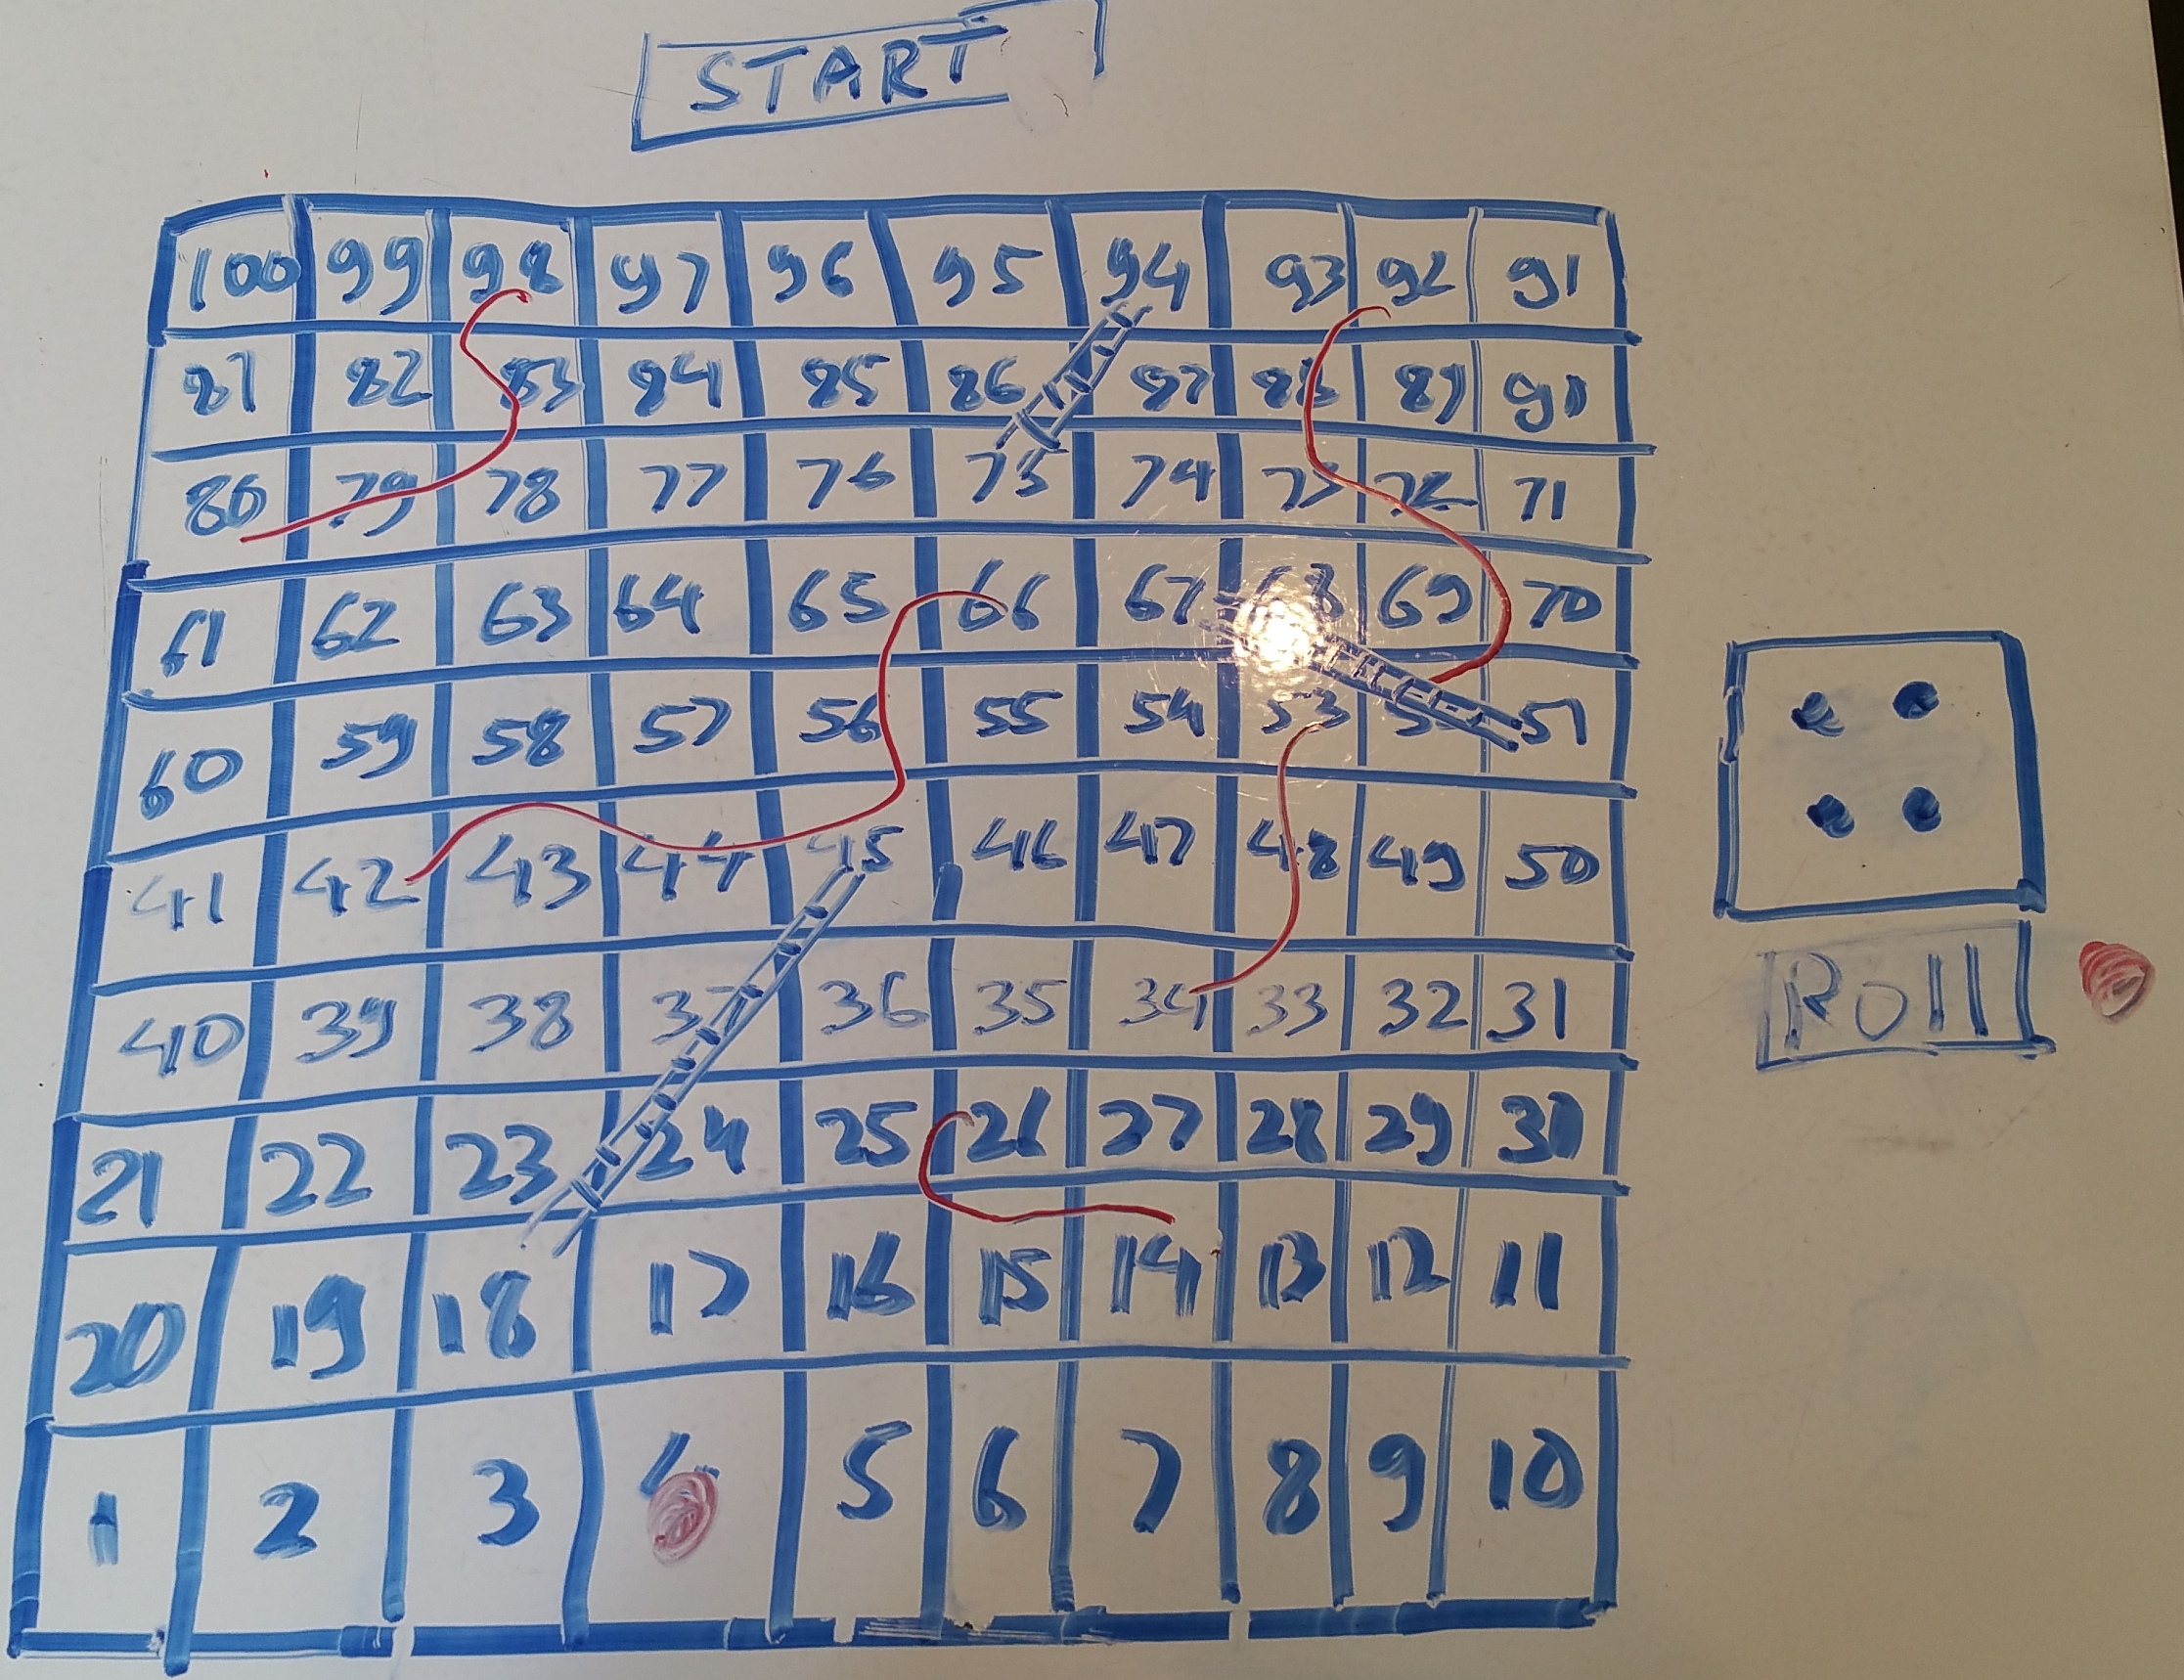 START
100 99 98 97 96 95 94 93 92 91
81 82 83 84 85 86 87 88 89 90
80 79 78 77 76 75 74 73 72 71
61 62 63 64 65 66 67 68 69 70
60 59 58 57 56 55 54 53 51
41 42 43 44 45 46 47 48 49 50
40 39 38 37 36 35 34 33 32 31
21 22 23 24 25 26 27 28 29 30
20 19 18 17 16 15 14 13 12 11
1 2 3 4 5 6 7 8 9 10
Roll